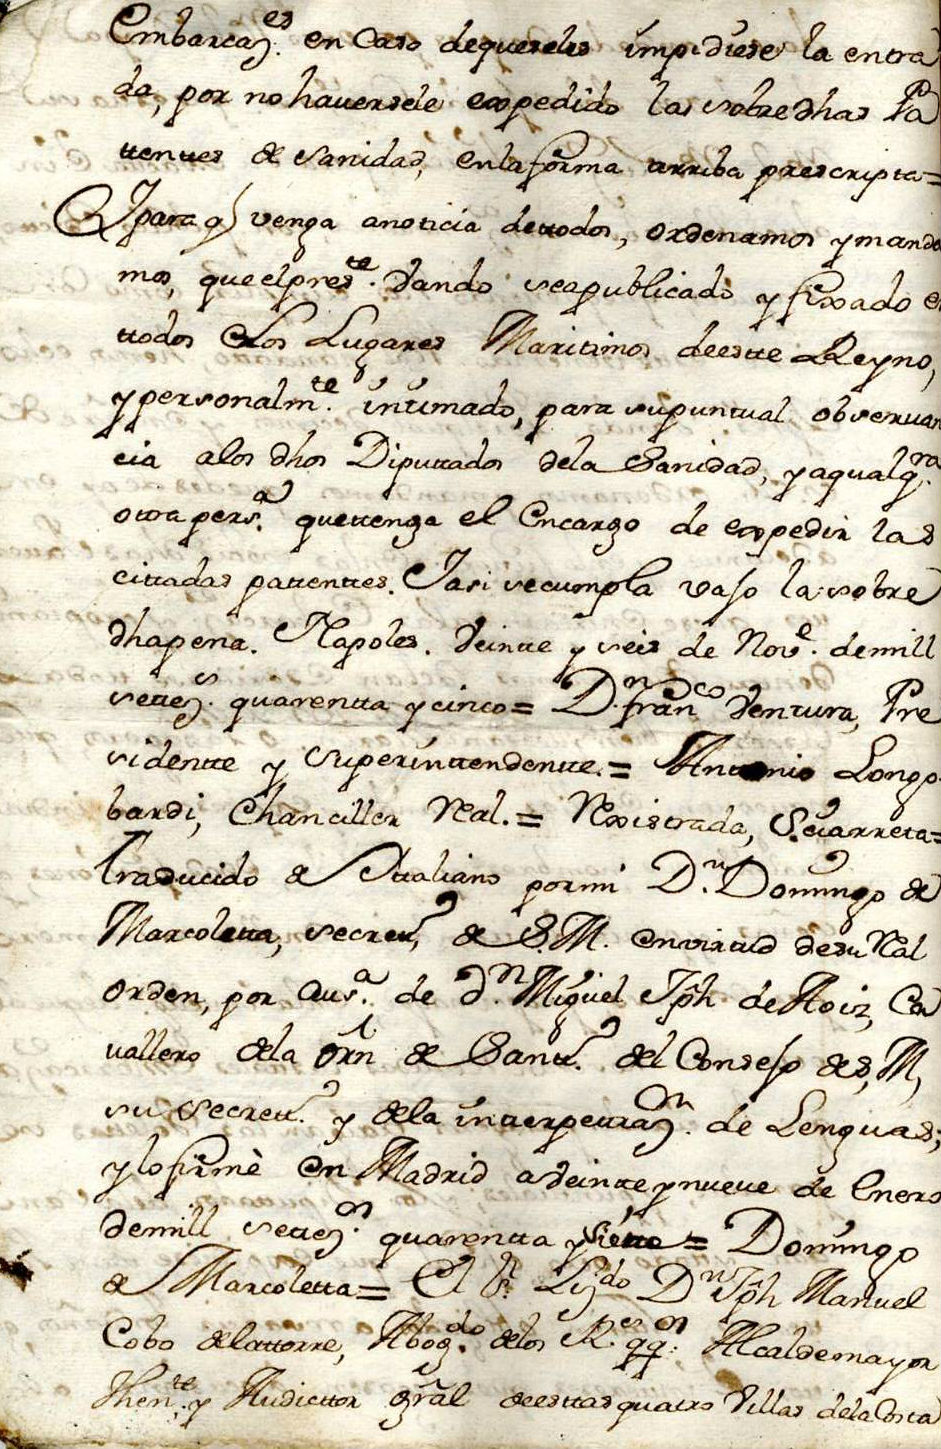 Embarcaz.es en Caso dequeseles impidiese la entra
da, por nohaversele expedido las sobredhas Pa
ttenttes de Sanidad, enlaforma arriba prescripta=
Ypara q venga anoticia dettodos, ordenamos ymanda
mos, queelpres.te Vando seapublicado y fixado en
ttodos los Lugares Maritimos deestte Reyno,
ypersonalm.te intimado, para supuntual observan
cia alos dhos Diputtados dela Sanidad, yaqualq.ra
otra pers.a quettenga el Encargo de expedir las
cittadas pattenttes. Yasi secumpla vajo la sobre
dhapena. Napoles. Veintte y seis de Nov.e demill
settez.s quarentta ycinco= D.n fran.co Ventura, Pre
sidentte y Superinttendentte.= Antonio Longo
bardi, Chanciller Real.= Rexistrada, Sciarreta=
Traducido de Ittaliano pormi D.n Domingo de
Marcoletta, secrett.o de S.M. envirtud desu Real
orden, por Aus.a de D.n Miguel Jph de Aoiz, Ca
vallero dela orn de Santt.o del Consejo de S,M,
su secrett.o y dela intterpettraz.on de Lenguas;
ylofirmè en Madrid aVeintte ynueve de Enero
demill settez.os quarentta ysiette= Domingo
de Marcoletta= El S.r Liz.do D.n Jph Manuel
Cobo delattorre, Abog.do delos R.es qq.os Alcaldemayor
Thent.te y Audittor gral deesttas quatro Villas delaCosta